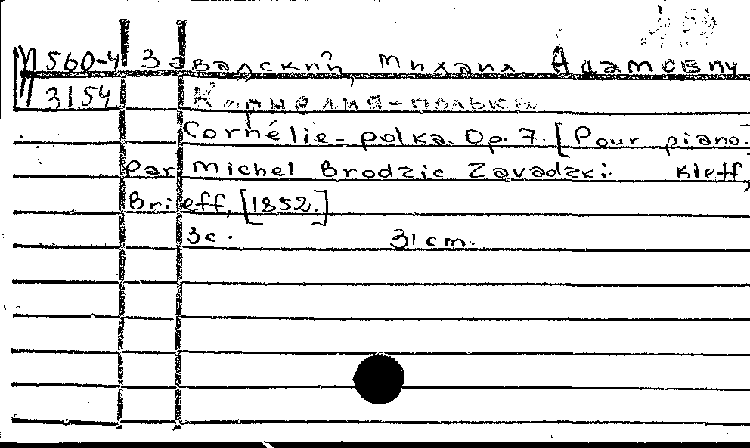 М 560-4 Завадский, Михаил Адамович
3154 Корнелия-полька
Cornélie-polka. Op. 7. [Pour piano.]
par Michel Brodzic Zavadzki. Kieff,
Brieff, [1852.]
3c. 31 cm.